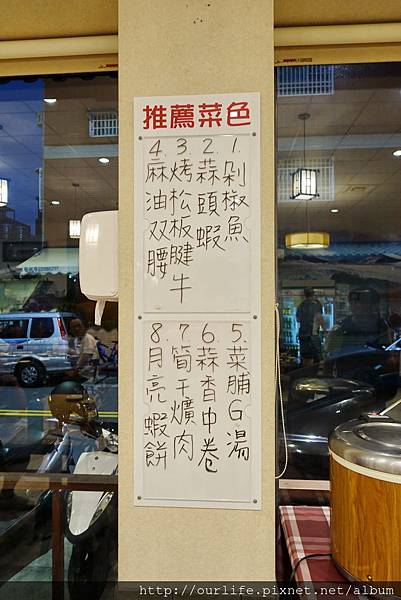 推薦菜色
1.剁椒魚
2.蒜頭蝦
3.烤松板腱牛
4.麻油双腰
5.菜脯G湯
6.蒜香中卷
7.筒干爌肉
8.月亮蝦餅
http://ourlife.pixnet.net/album